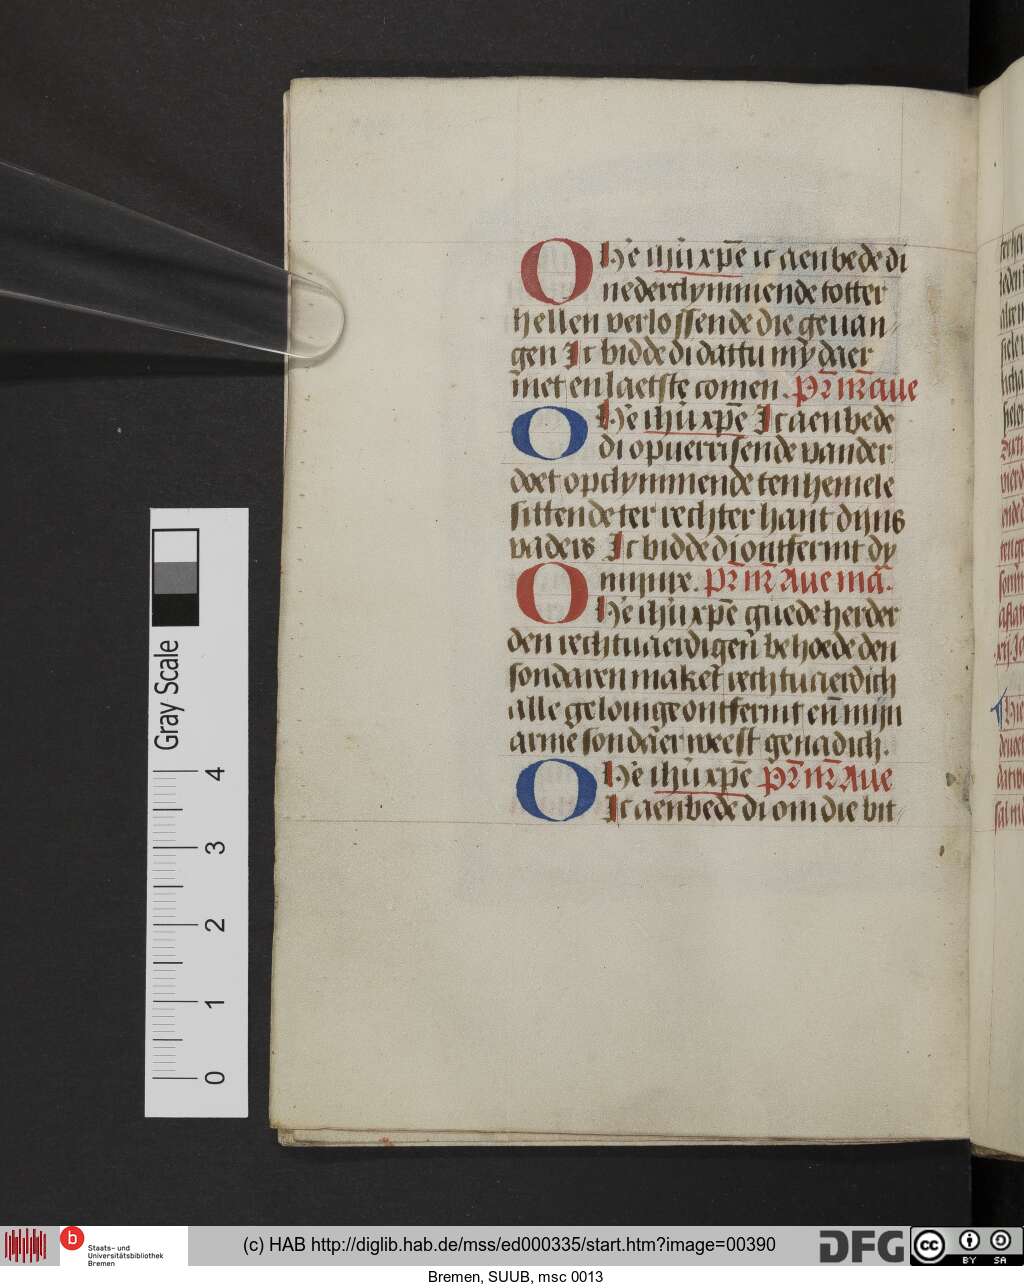 O he ihu xpe ic aenbede di
nederclymmende totter
hellen verlossende die gevan
gen Ic bidde di dattu my daer
niet en laetste comen. Pr nr ave
O he ihu xpe Ic aenbede
di opverrisende vander
doet opclymmende ten hemele
sittende ter rechter hant dijns
vaders Ic bidde di ontfermt dy
mijnre. Pr nr Ave ma.
O he ihu xpe guede herder
den rechtuaerdigen behoede den
sondaren maket rechtuaerdich
alle gelouige ontfermt en mijn
arme sondaer weest genadich.
O he ihu xpe Pr nr Ave
Ic aenbede di om die bit
Gray Scale
4
3
2
1
0
b
Staats- und
Universitätsbibliothek
Bremen
(c) HAB http://diglib.hab.de/mss/ed000335/start.htm?image=00390
DFG
cc
BY SA
Bremen, SUUB, msc 0013